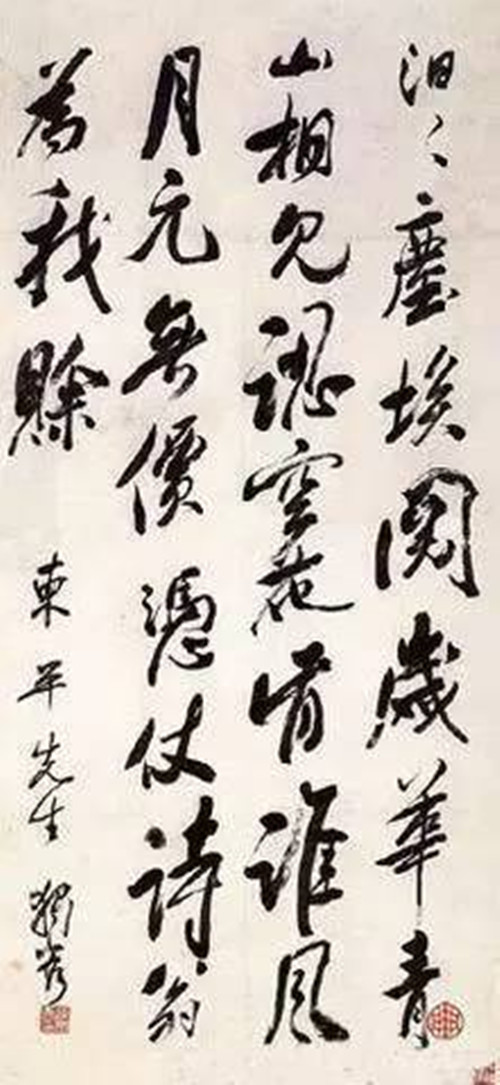 汩々塵埃閱歲華青
山相見認空花有誰風
月元無價憑仗詩翁
為我賒
東平先生 獨秀